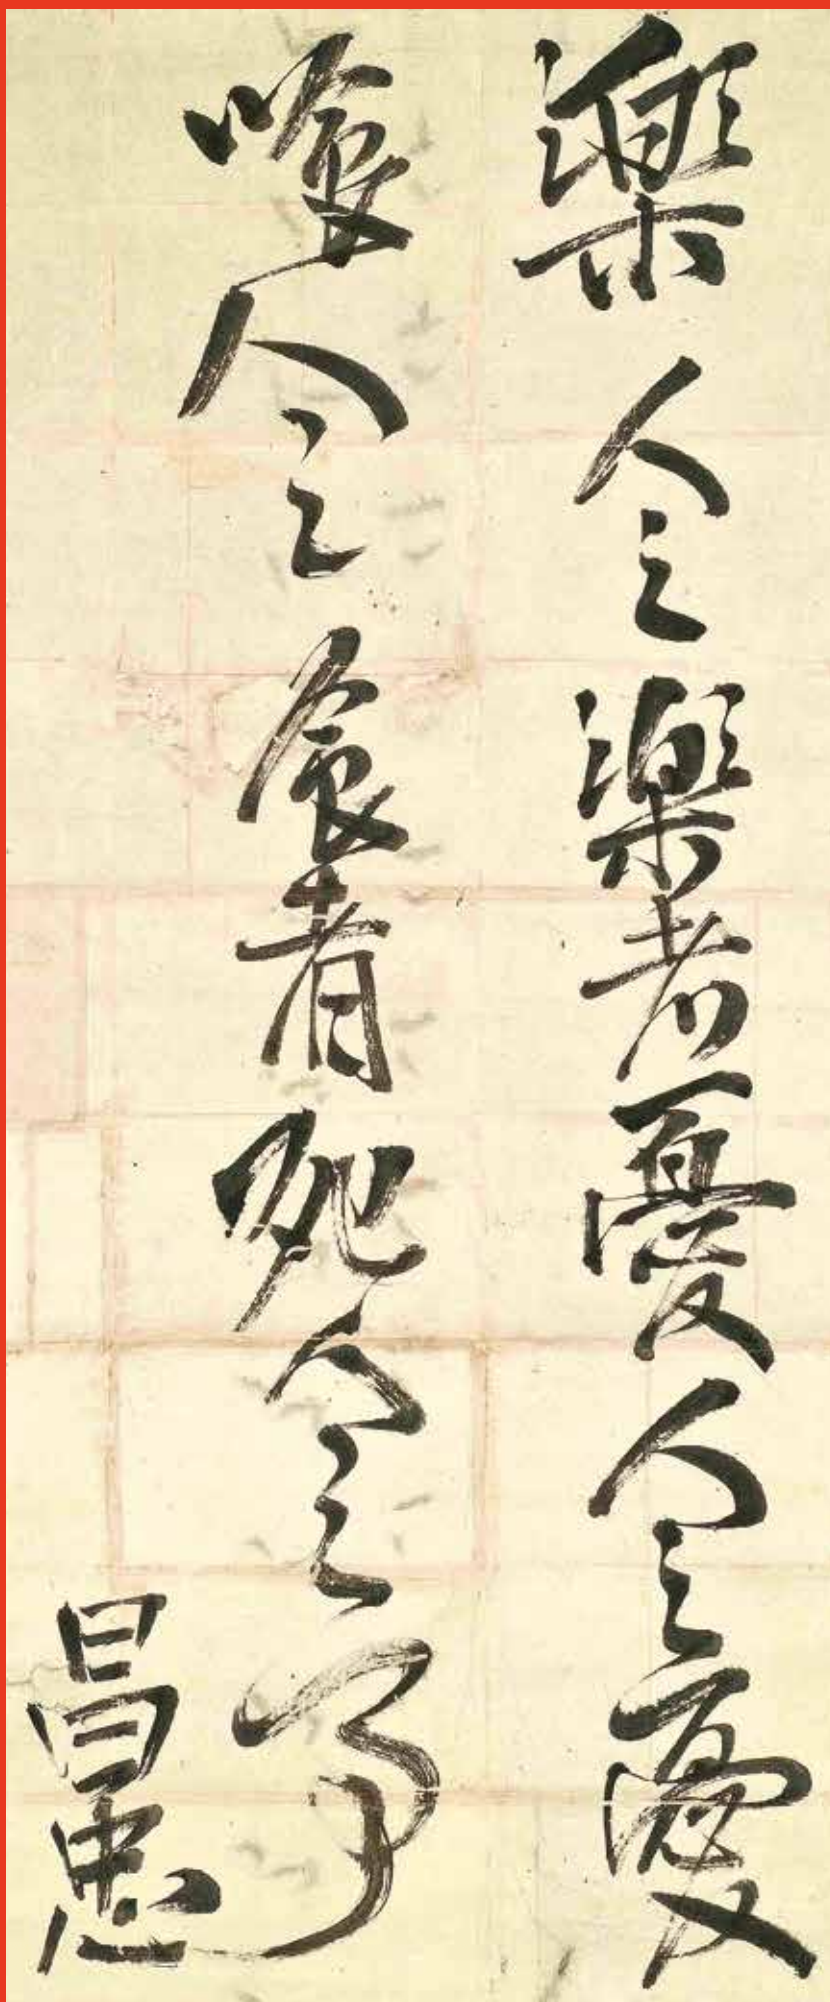 樂人之樂者憂人之憂
喰人之食者死人之事
昌忠